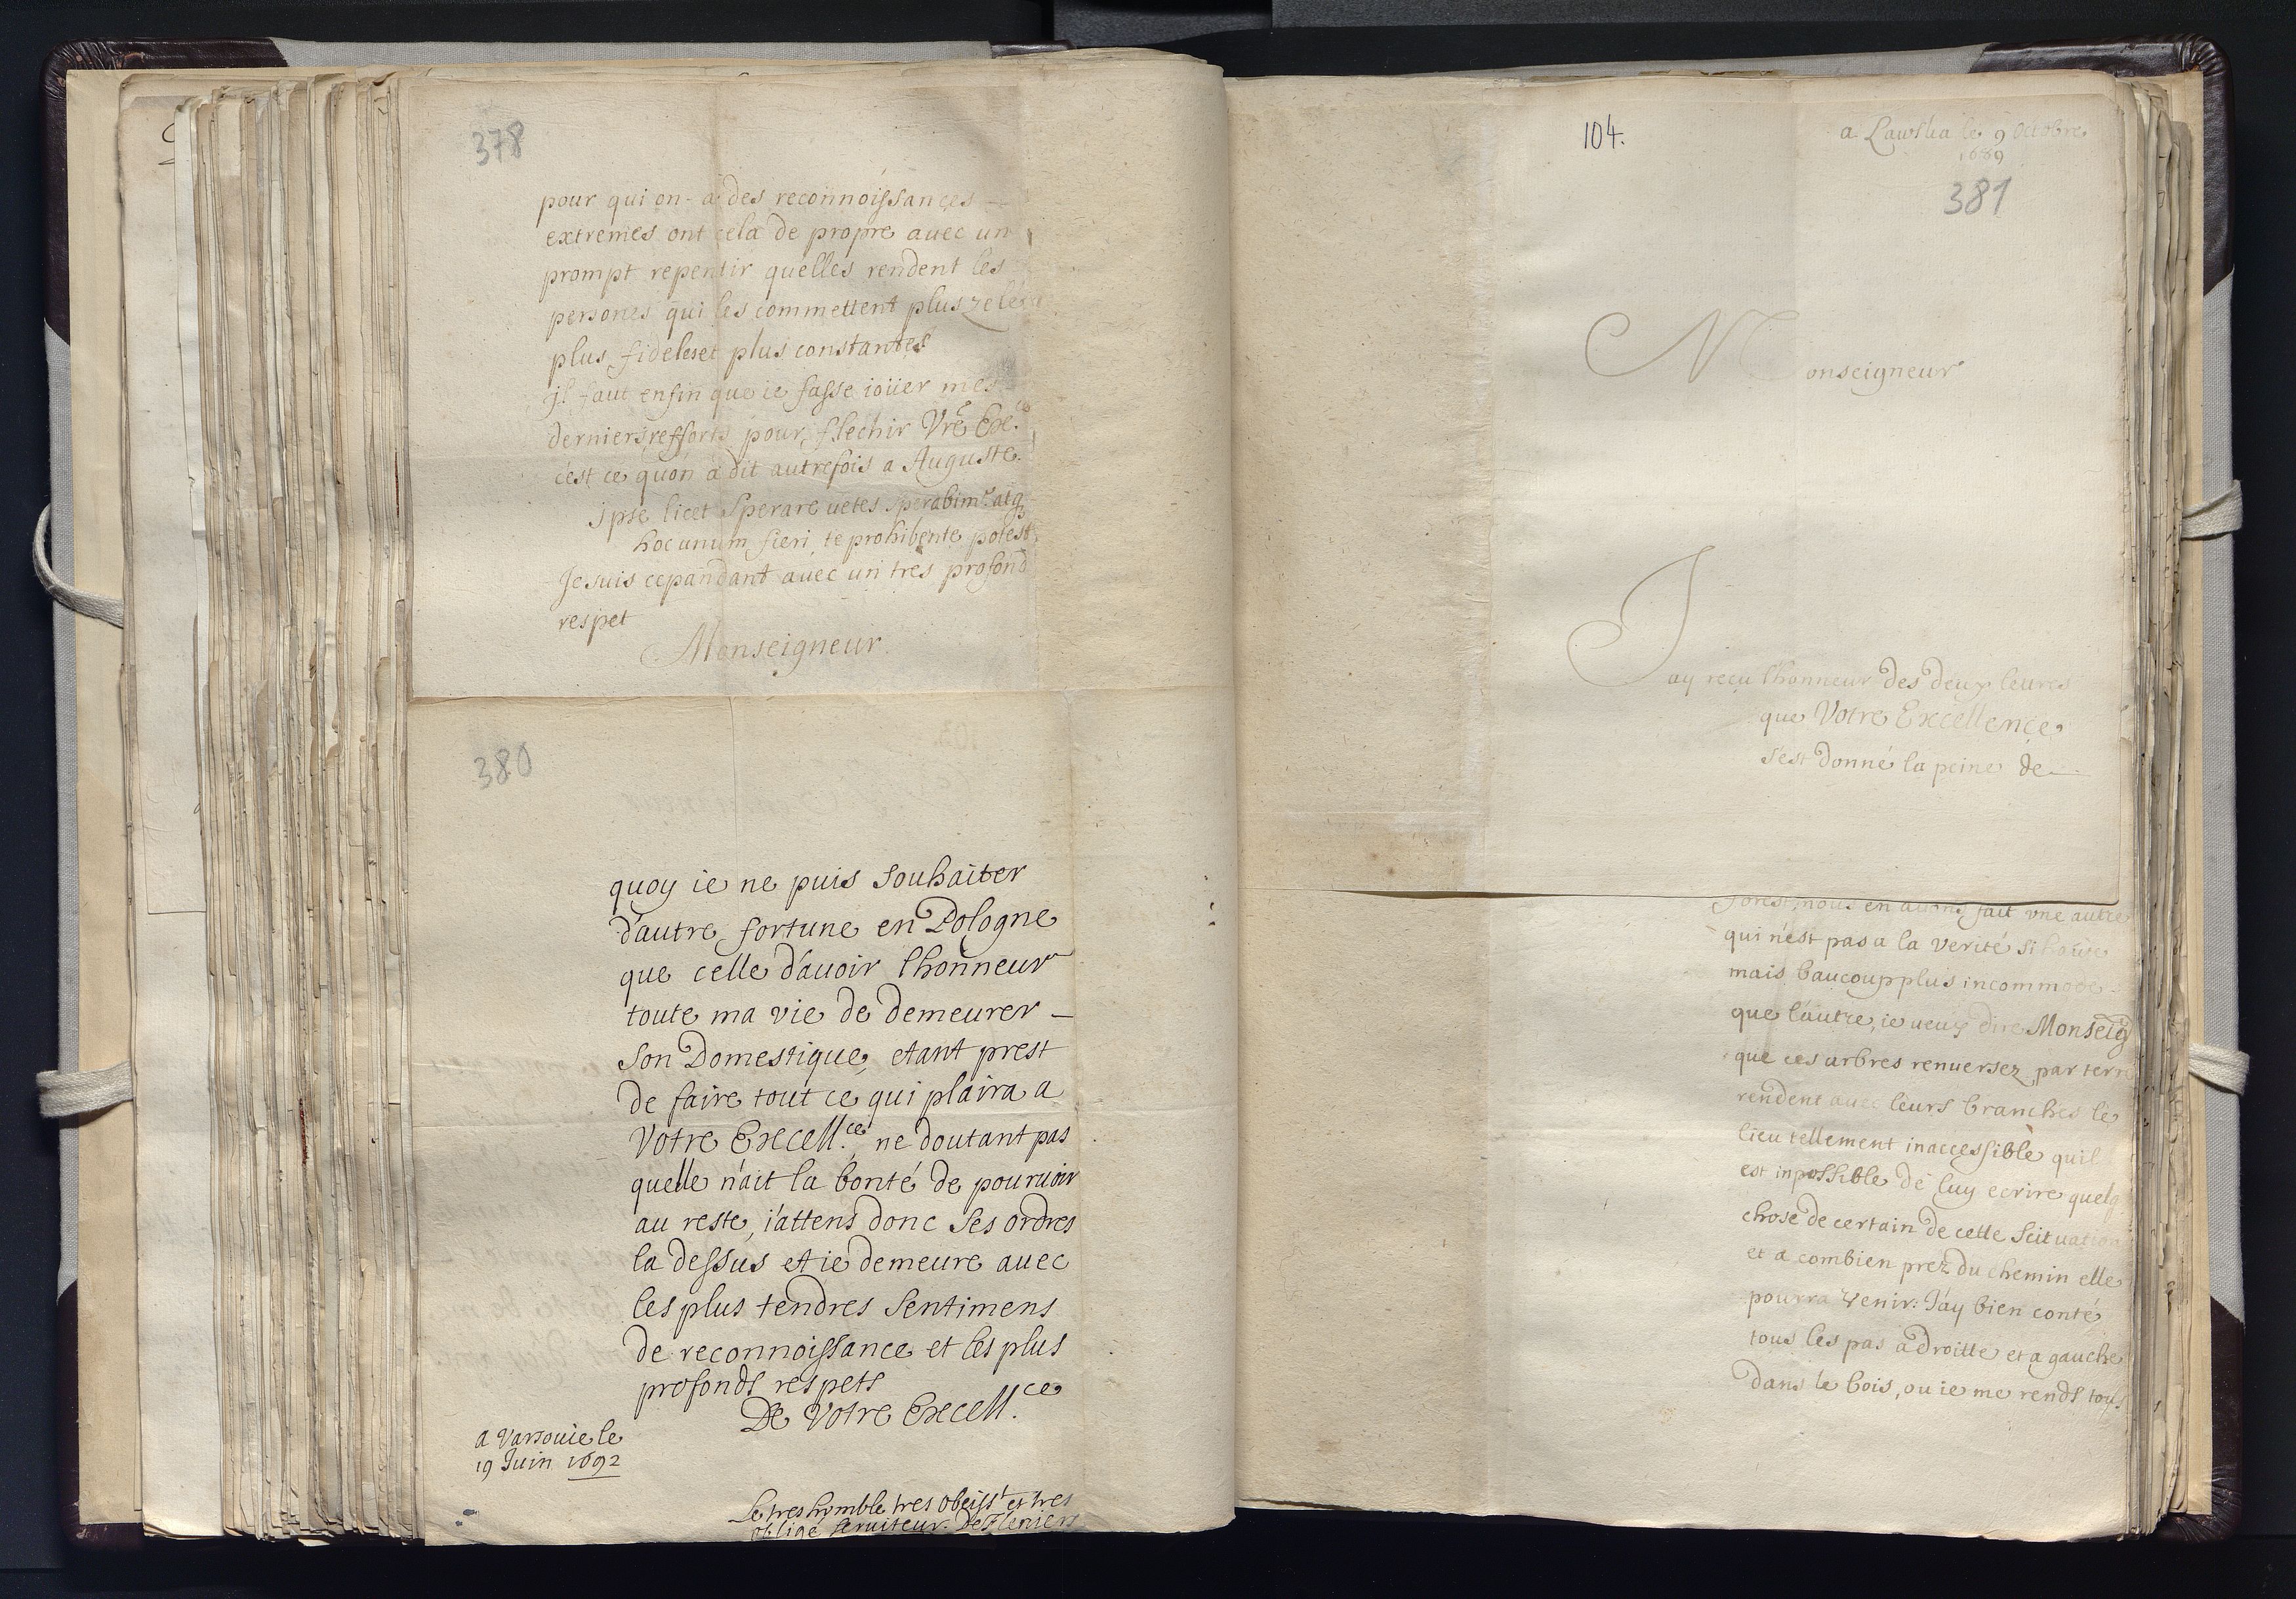 378
pour qui on a des reconnoissances
extremes ont cela de propre avec un
prompt repentir quelles rendent les
persones qui les commettent plus zelées
plus fideles et plus constantes
jl faut enfin que ie fasse ioüer mes
derniers efforts pour flechir Vre Exce
c'est ce quon a dit autrefois a Auguste.
jpse licet sperare vetes sperabimr atq
hoc unum fieri te prohibente potest
Je suis cepandant avec un tres profond
respet
Monseigneur
380
quoy ie ne puis souhaiter
d'autre fortune en Pologne
que celle d'avoir lhonneur
toute ma vie de demeurer –
son Domestique, etant prest
de faire tout ce qui plaira a
Votre Excell.ce, ne doutant pas
quelle n'ait la bonté de pourvoir
au reste, i'attens donc ses ordres
la dessus et ie demeure avec
les plus tendres sentimens
de reconnoissance et les plus
profonds respets
De Votre Excell.ce
a Varsovie le
19 Juin 1692
Le tres humble tres obeisst et tres
obligé serviteur
104.
a Lawska le 9 Octobre
1689
381
Monseigneur
Jay reçu lhonneur des deux lettres
que Votre Excellence
s'est donné la peine de
forest, nous en avons fait une autre
qui n'est pas a la verité si haute
mais baucoup plus incommode
que l'autre, ie veux dire Monseig
que ces arbres renversez par terre
rendent avec leurs branches le
lieu tellement inaccessible quil
est inpossible de luy ecrire quelq
chose de certain de cette scituation
et a combien prez du chemin elle
pourra venir: J'ay bien conté
tous les pas a droitte et a gauche
dans le bois, ou ie me rends tous